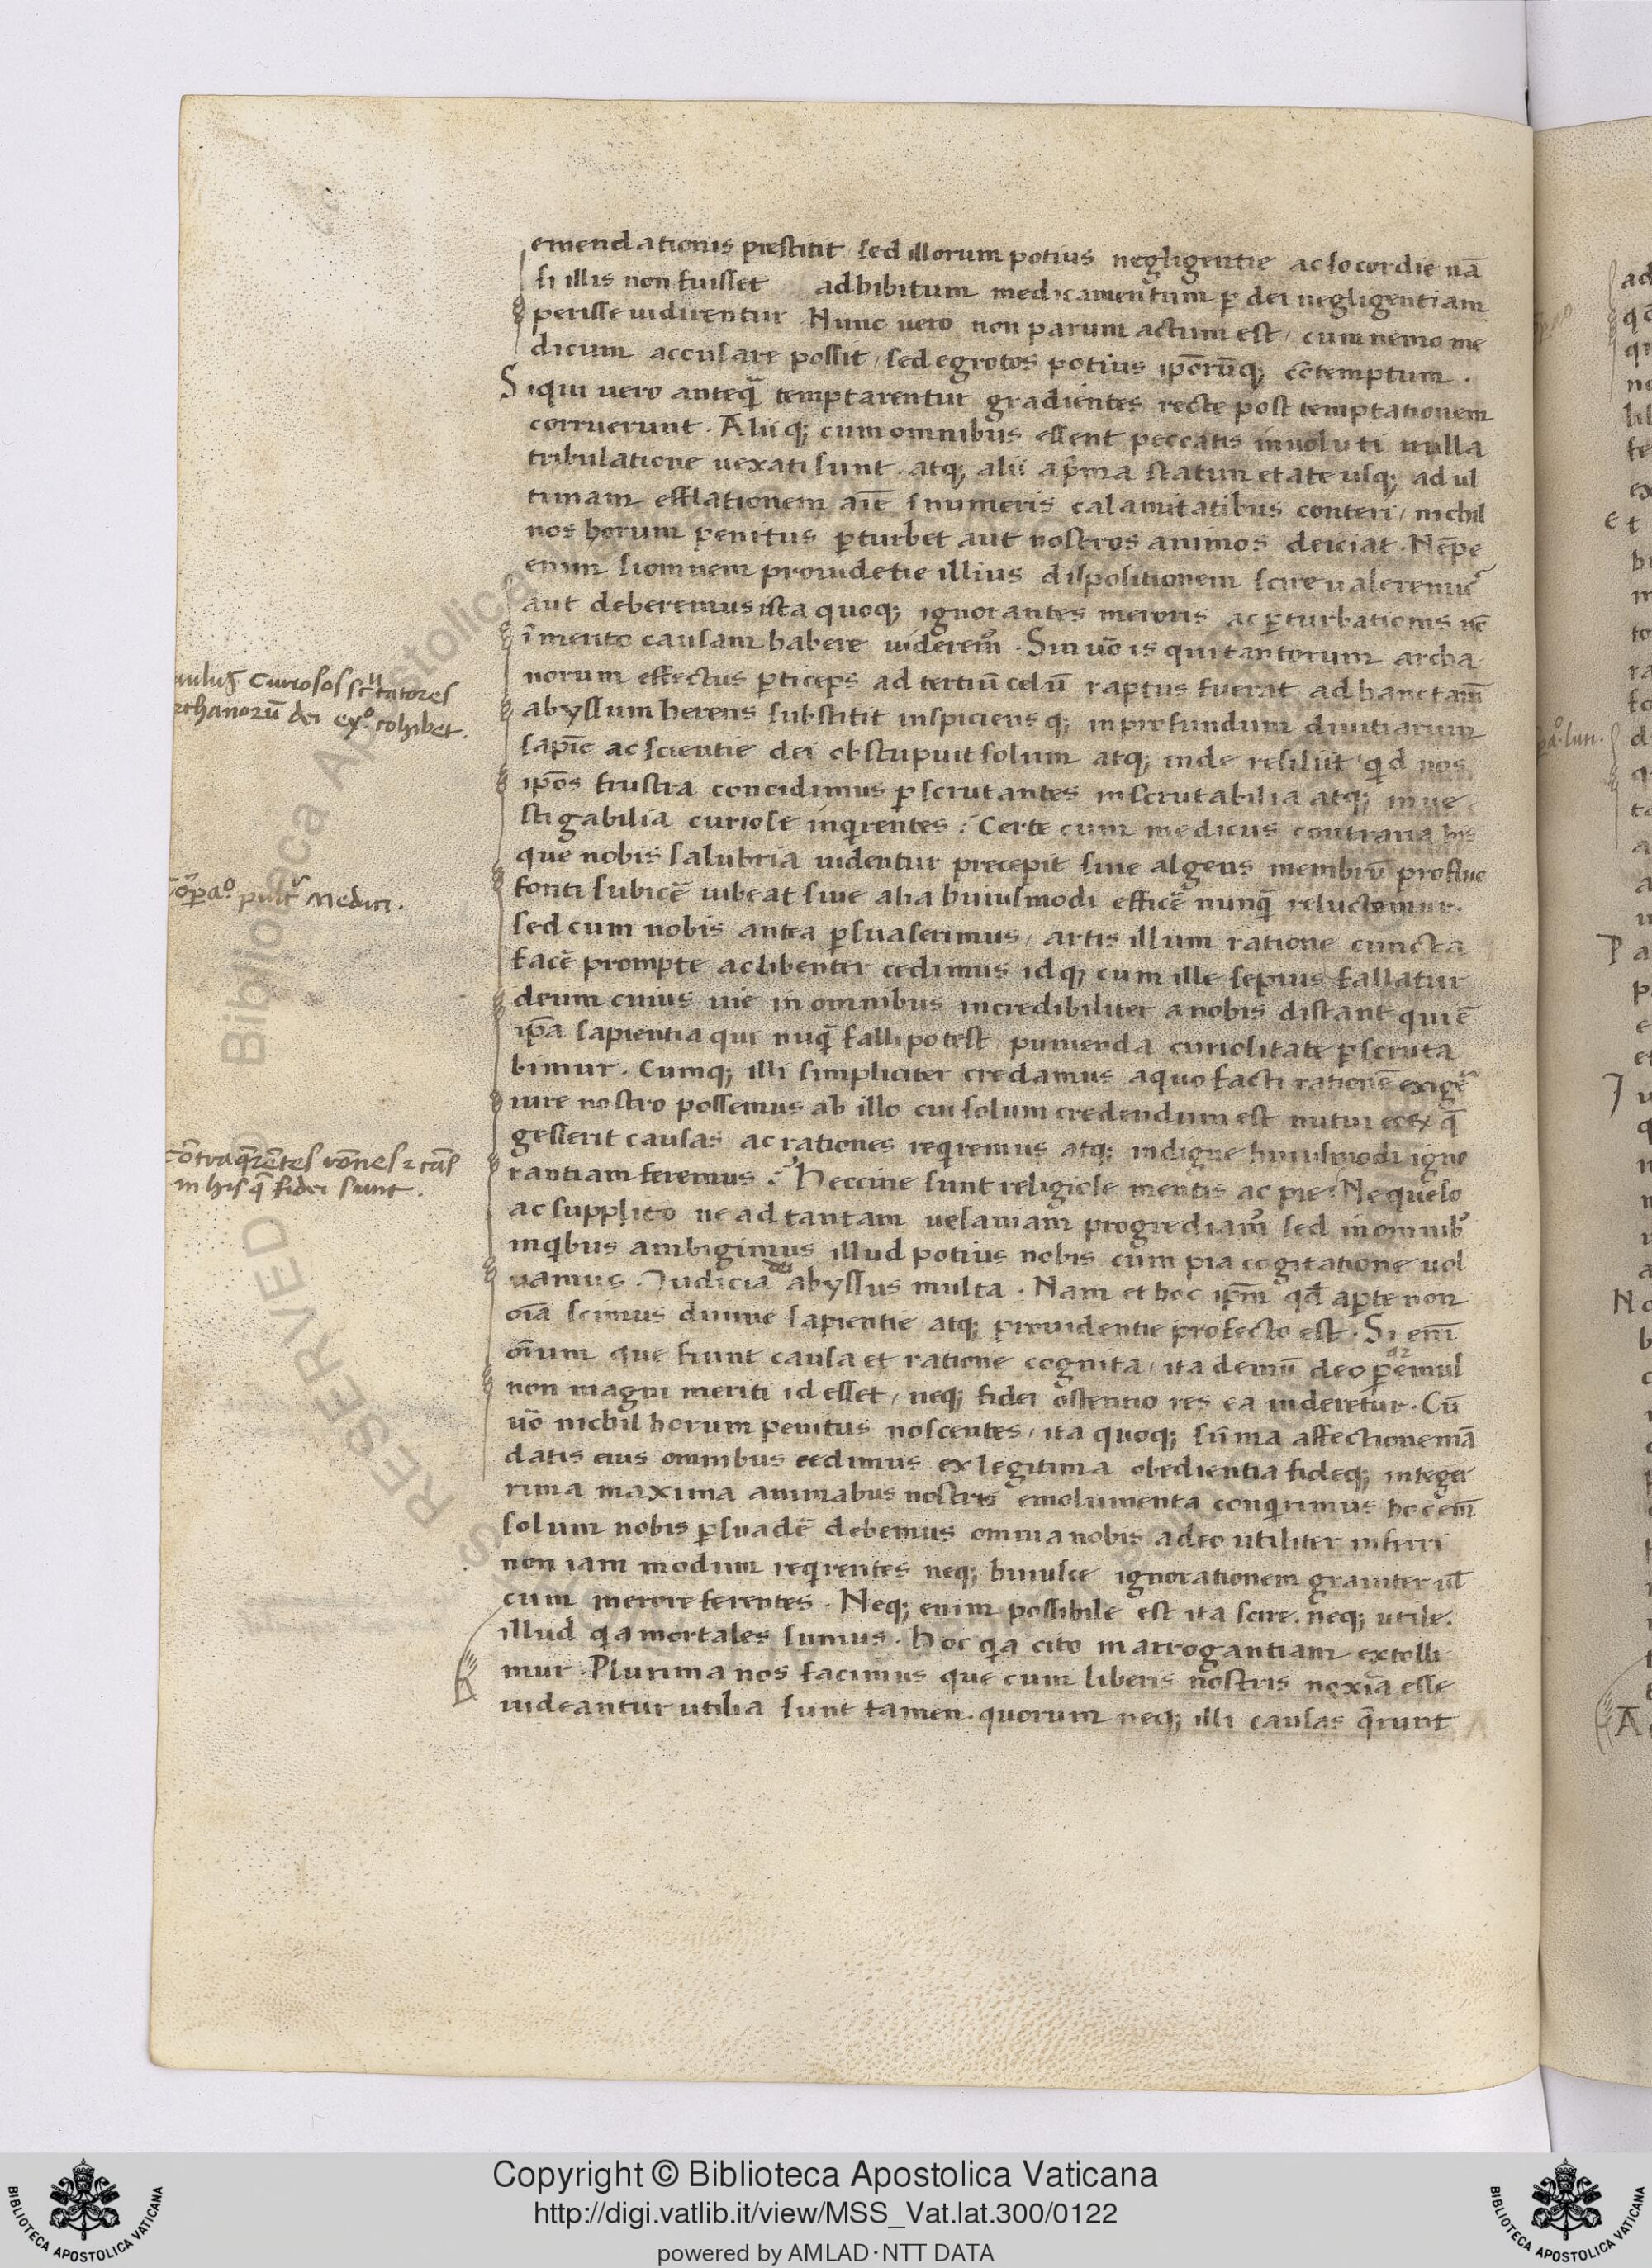 emendationis prestitit sed illorum potius negligentie ac socordie nā
si illis non fuisset adhibitum medicamentum ꝑ dei negligentiam
perisse uidirentur. Nunc uero non parum actum est, cum nemo me
dicum accusare possit, sed egrotos potius ip̄orūq; cōtemptum.
Siqui uero anteq̄ temptarentur gradientes recte post temptationem
corruerunt. Alii q; cum omnibus essent peccatis inuoluti nulla
tribulatione uexati sunt. atq; alii a p̄ma statim etate usq; ad ul
timam efflationem aīe innumeris calamitatibus conteri, nichil
nos horum penitus ꝑturbet aut nostros animos deiciat. Nēpe
enim si omnem prouidētie illius dispositionem scire ualeremus
aut deberemus ista quoq; ignorantes meroris ac ꝑturbationis nō
īmerito causam habere uiderem᾽. Sin uō is qui tantorum archa
norum effectus ꝑticeps ad tertiū celū raptus fuerat ad hanc tam̄
abyssum herens substitit inspiciensq; in profundum diuitiarum
sapīe ac scientie dei obstupuit solum atq; inde resiliit qd nos
ip̄os frustra concidimus ꝑscrutantes inscrutabilia atq; inue
stigabilia curiose inqirentes? Certe cum medicus contraria his
que nobis salubria uidentur precepit siue algens membrū profluo
fonti subicē iubeat siue alia huiusmodi efficē nunq̄ reluctemur.
sed cum nobis antea ꝑsuaserimus, artis illum ratione cuncta
facē prompte ac libenter cedimus idq; cum ille sepius fallatur
deum cuius uie in omnibus incredibiliter a nobis distant qui ē
ip̄a sapientia qui nūq̄ falli potest, punienda curiositate ꝑscruta
bimur. Cumq; illi simpliciter credamus a quo facti rationē exigē
iure nostro possemus ab illo cui solum credendum est nutui eoꝝ q̄
gesserit causas ac rationes reqiremus atq; indigne huiusmodi igno
rantiam feremus? Heccine sunt religiose mentis ac pie? Ne queso
ac supplico ne ad tantam uesaniam progrediam᾽ sed in omnib᾽
inqibus ambigimus illud potius nobis cum pia cogitatione uol
uamus. Judicia dei abyssus multa. Nam et hoc ip̄m qd̄ aꝑte non
oīa scimus diuine sapientie atq; prouidentie profecto est. Si enī
oīum que fiunt causa et ratione cognita, ita demū deo
non magni meriti id esset, neq; fidei ostentio res ea uideretur. Cū
uō nichil horum penitus noscentes, ita quoq; sūma affectione mā
datis eius omnibus cedimus ex legitima obedientia fideq; intege
rima maxima animabus nostris emolumenta conqirimus hoc em̄
solum nobis ꝑsuadē debemus omnia nobis a deo utiliter inferri
non iam modum reqirentes neq; huiusce ignorationem grauiter ul̄
cum merore ferentes. Neq; enim possibile est ita scire. neq; utile.
illud qa mortales sumus. hoc qa cito in arrogantiam extolli
mur. Plurima nos facimus que cum liberis nostris noxia esse
uideantur utilia sunt tamen. quorum neq; illi causas q̄runt
aulus curiosos scrutatores
rchanorū dei exº. cohibet.
cōpaº pulcr̄ Medici.
cōtra q̄rētes rōnes ⁊ cās
in his q̄ fidei sunt.
Copyright © Biblioteca Apostolica Vaticana
http://digi.vatlib.it/view/MSS_Vat.lat.300/0122
powered by AMLAD·NTT DATA
BIBLIOTECA APOSTOLICA VATICANA
BIBLIOTECA APOSTOLICA VATICANA